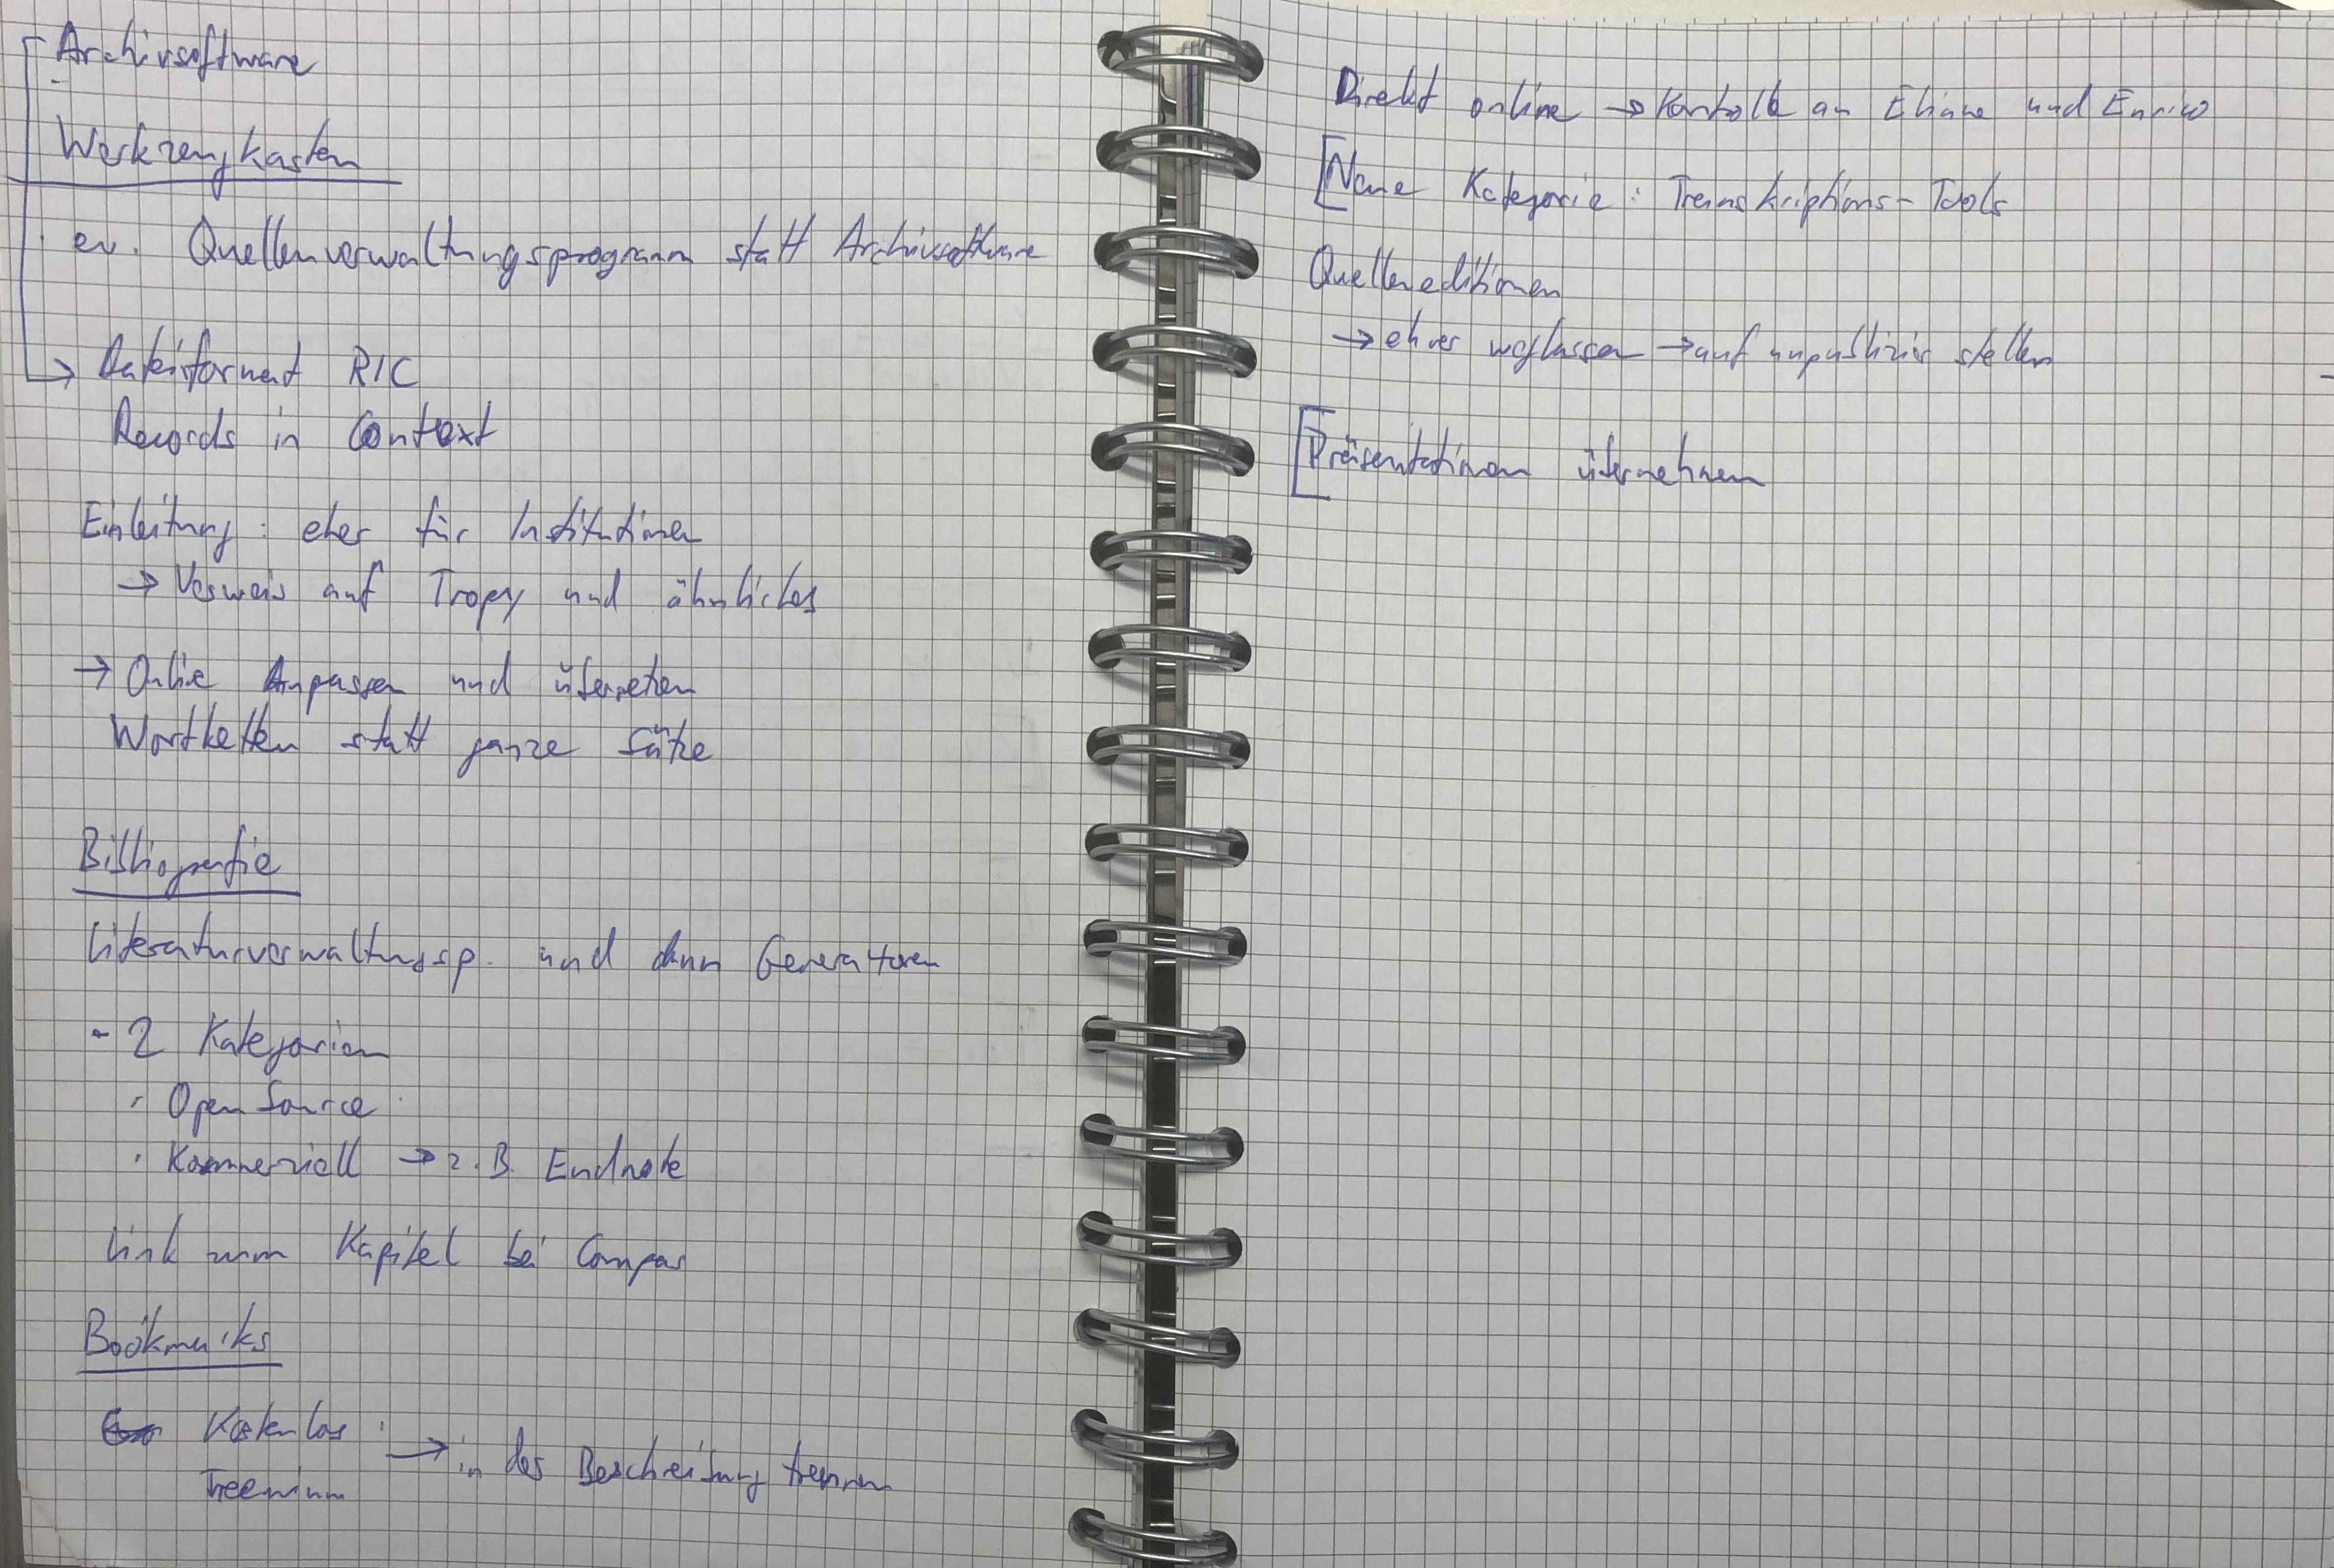 Archivsoftware
Werkzeugkasten
ev. Quellenverwaltungsprogramm statt Archivsoftware
→ Dateiformat RIC
Records in Context
Einleitung: eher für Institutionen
→ Verweis auf Tropy und ähnliches
→ Onlie Anpassen und übersetzen
Wortketten statt ganze Sätze
Bibliografie
Literaturverwaltungsp. und dann Generatoren
- 2 Kategorien
· Open Source
· Kommerziell → z.B. Endnote
Link zum Kapitel bei Compas
Bookmarks
Kostenlos
Freemium → in der Beschreibung trennen
Direkt online → Kontrolle an Eliane und Enrico
[Neue Kategorie: Transkriptions-Tools
Quelleneditionen
→ eher weglassen → auf unpubliziert stellen
[Präsentationen übernehmen